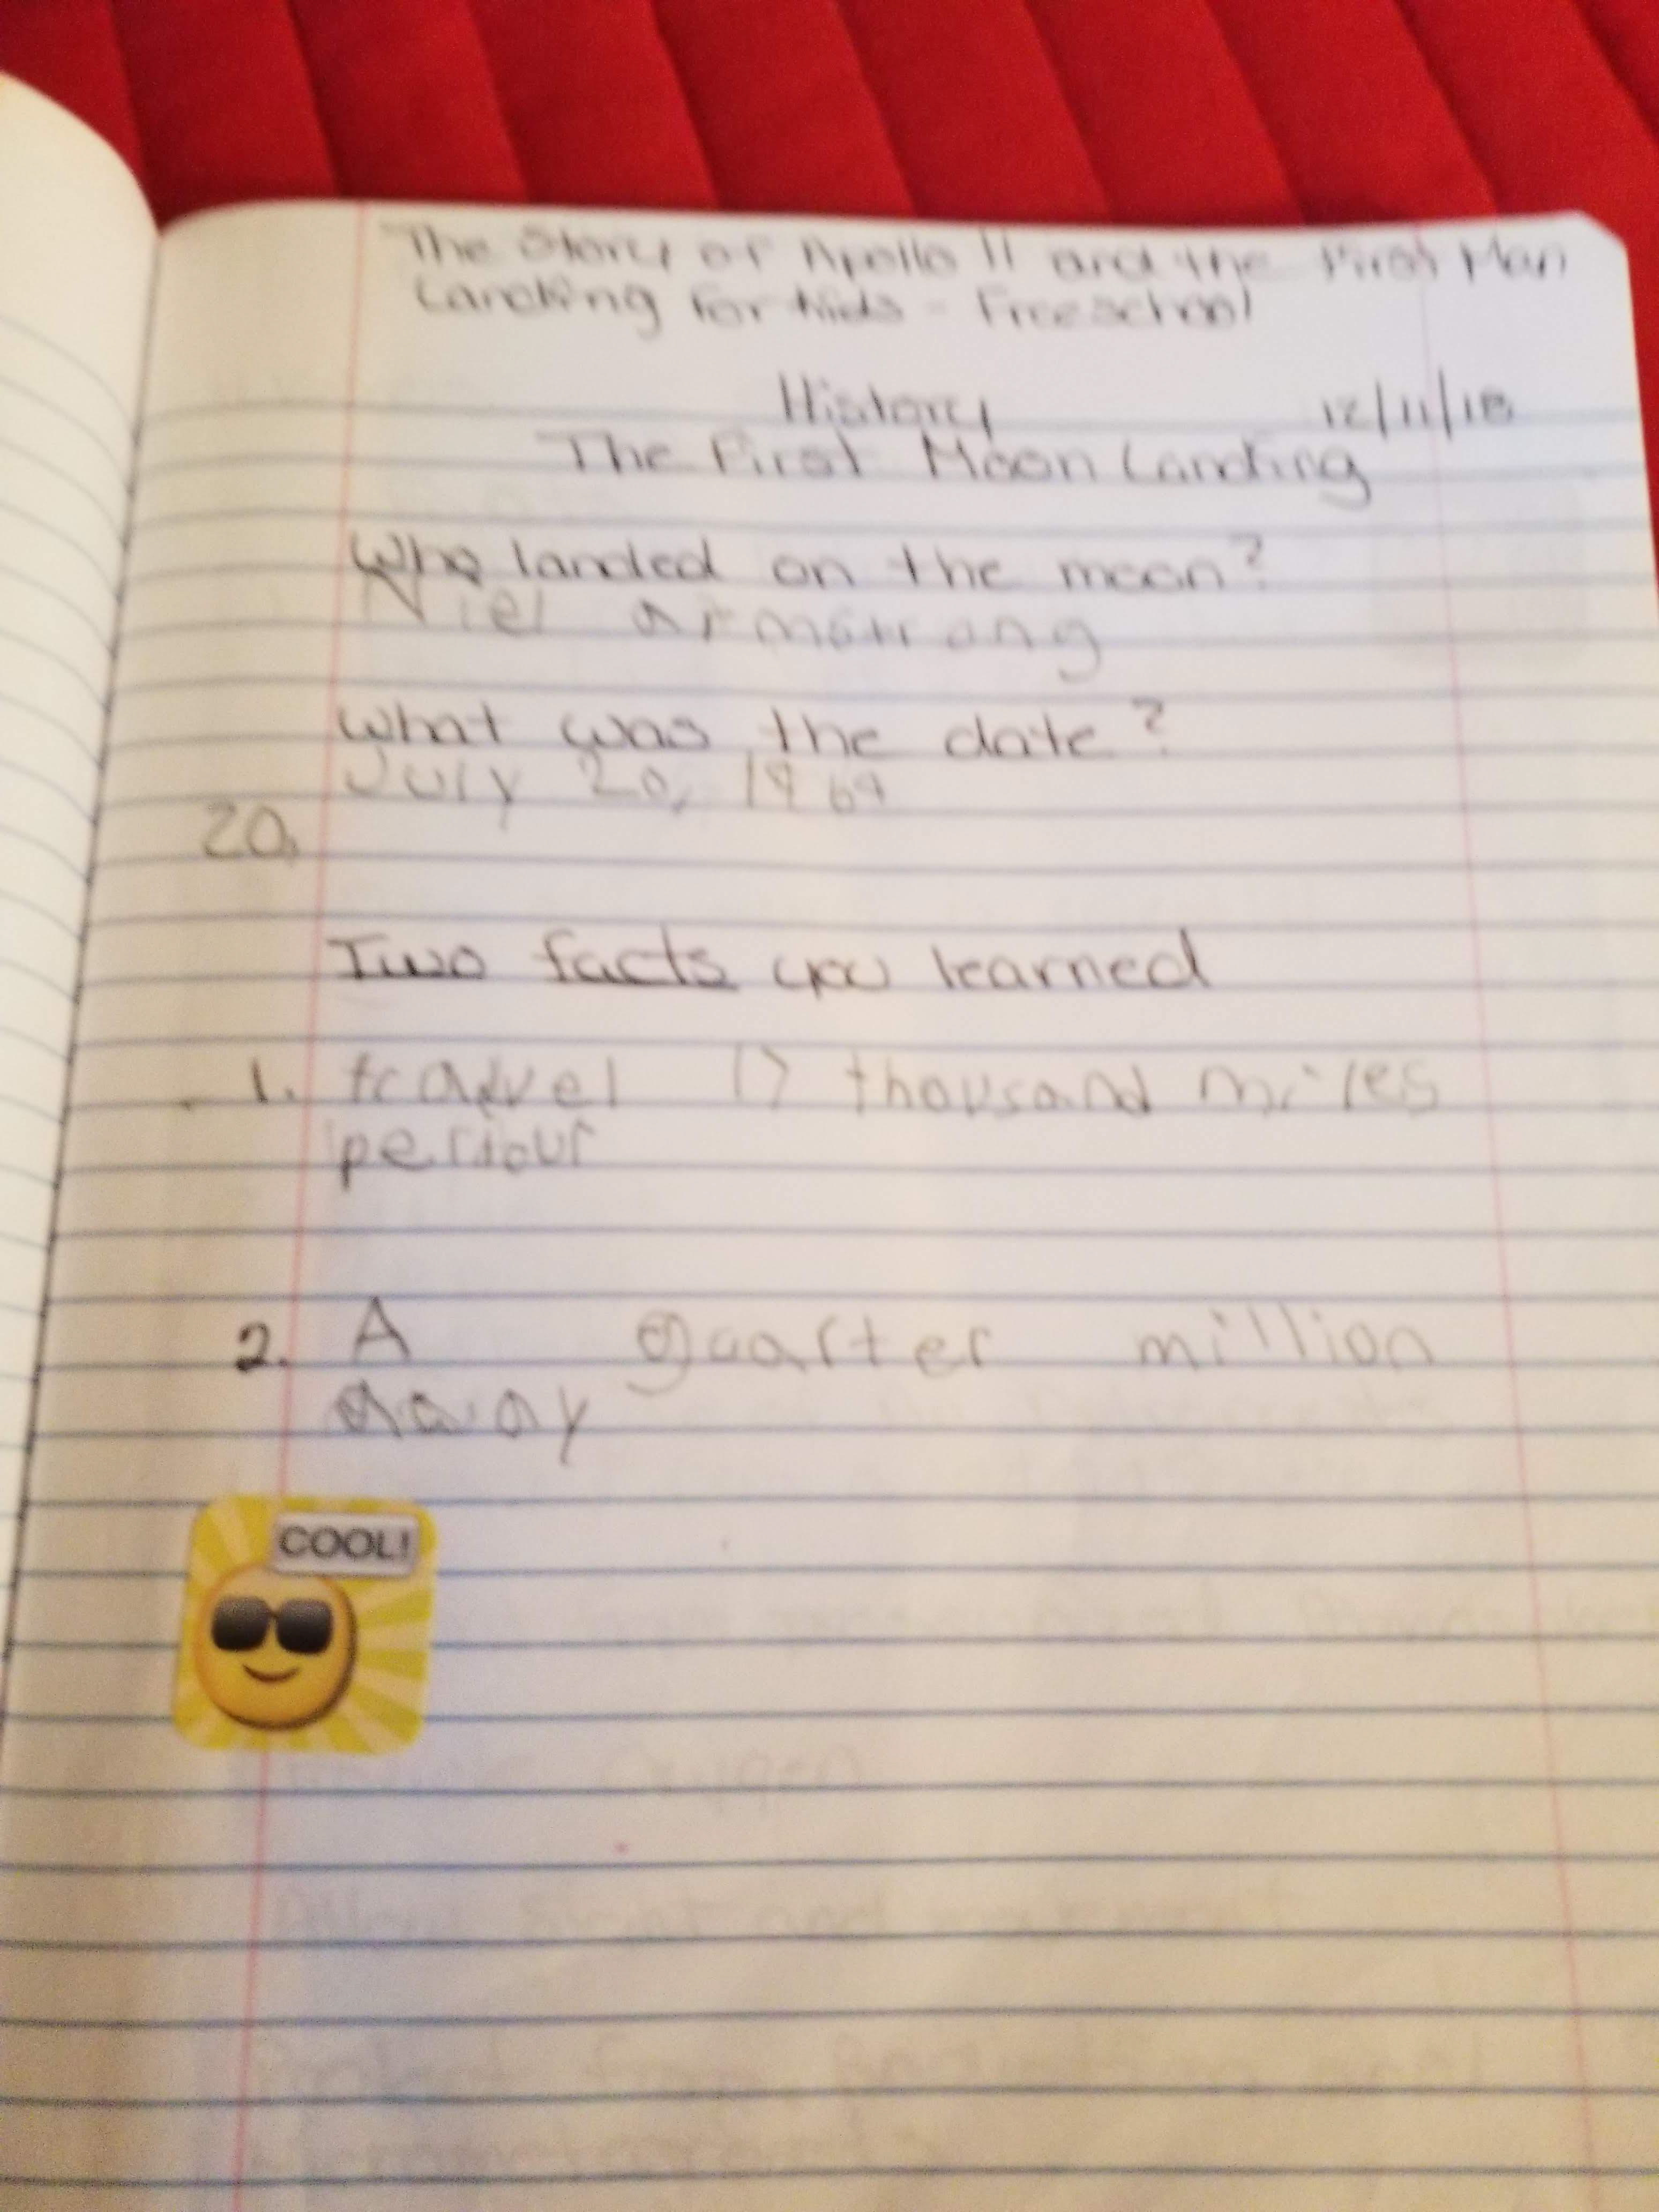 The Story of Apollo 11 and the First Man
Landing for Kids - Freeschool
History 12/11/18
The First Moon Landing
Who landed on the moon?
Niel armstrong
What was the date?
July 20, 1969
20,
Two facts you learned
1. travel 17 thousand miles
per
2. A quarter million
away
COOL!